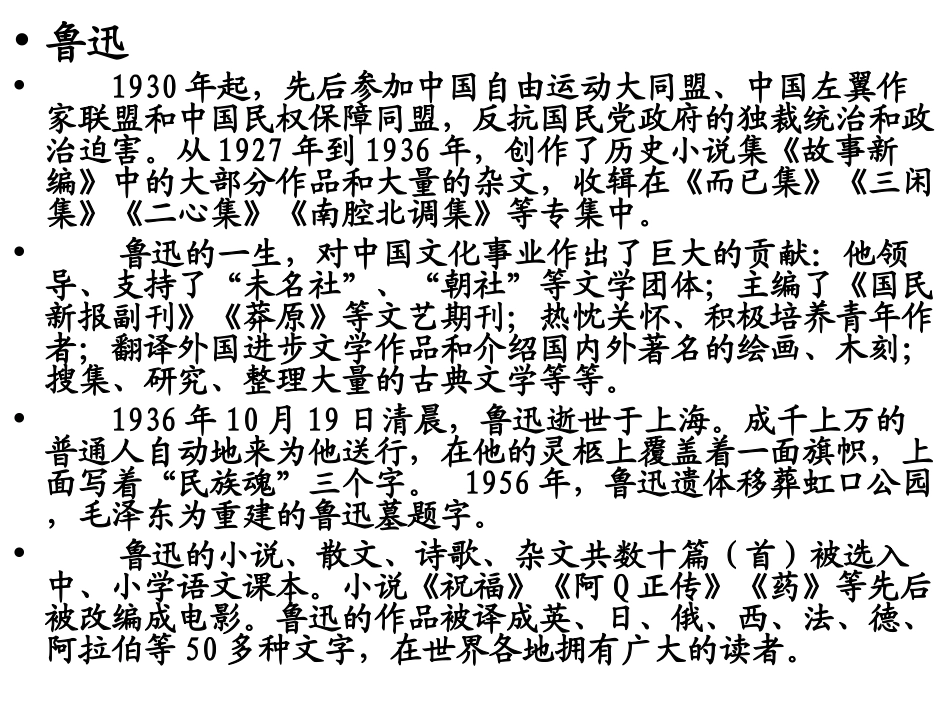 • 鲁迅
• 1930 年起，先后参加中国自由运动大同盟、中国左翼作
家联盟和中国民权保障同盟，反抗国民党政府的独裁统治和政
治迫害。从 1927 年到 1936 年，创作了历史小说集《故事新
编》中的大部分作品和大量的杂文，收辑在《而已集》《三闲
集》《二心集》《南腔北调集》等专集中。
• 鲁迅的一生，对中国文化事业作出了巨大的贡献：他领
导、支持了“未名社”、“朝社”等文学团体；主编了《国民
新报副刊》《莽原》等文艺期刊；热忱关怀、积极培养青年作
者；翻译外国进步文学作品和介绍国内外著名的绘画、木刻；
搜集、研究、整理大量的古典文学等等。
• 1936 年 10 月 19 日清晨，鲁迅逝世于上海。成千上万的
普通人自动地来为他送行，在他的灵柩上覆盖着一面旗帜，上
面写着“民族魂”三个字。 1956 年，鲁迅遗体移葬虹口公园
，毛泽东为重建的鲁迅墓题字。
• 鲁迅的小说、散文、诗歌、杂文共数十篇（首）被选入
中、小学语文课本。小说《祝福》《阿 Q 正传》《药》等先后
被改编成电影。鲁迅的作品被译成英、日、俄、西、法、德、
阿拉伯等 50 多种文字，在世界各地拥有广大的读者。